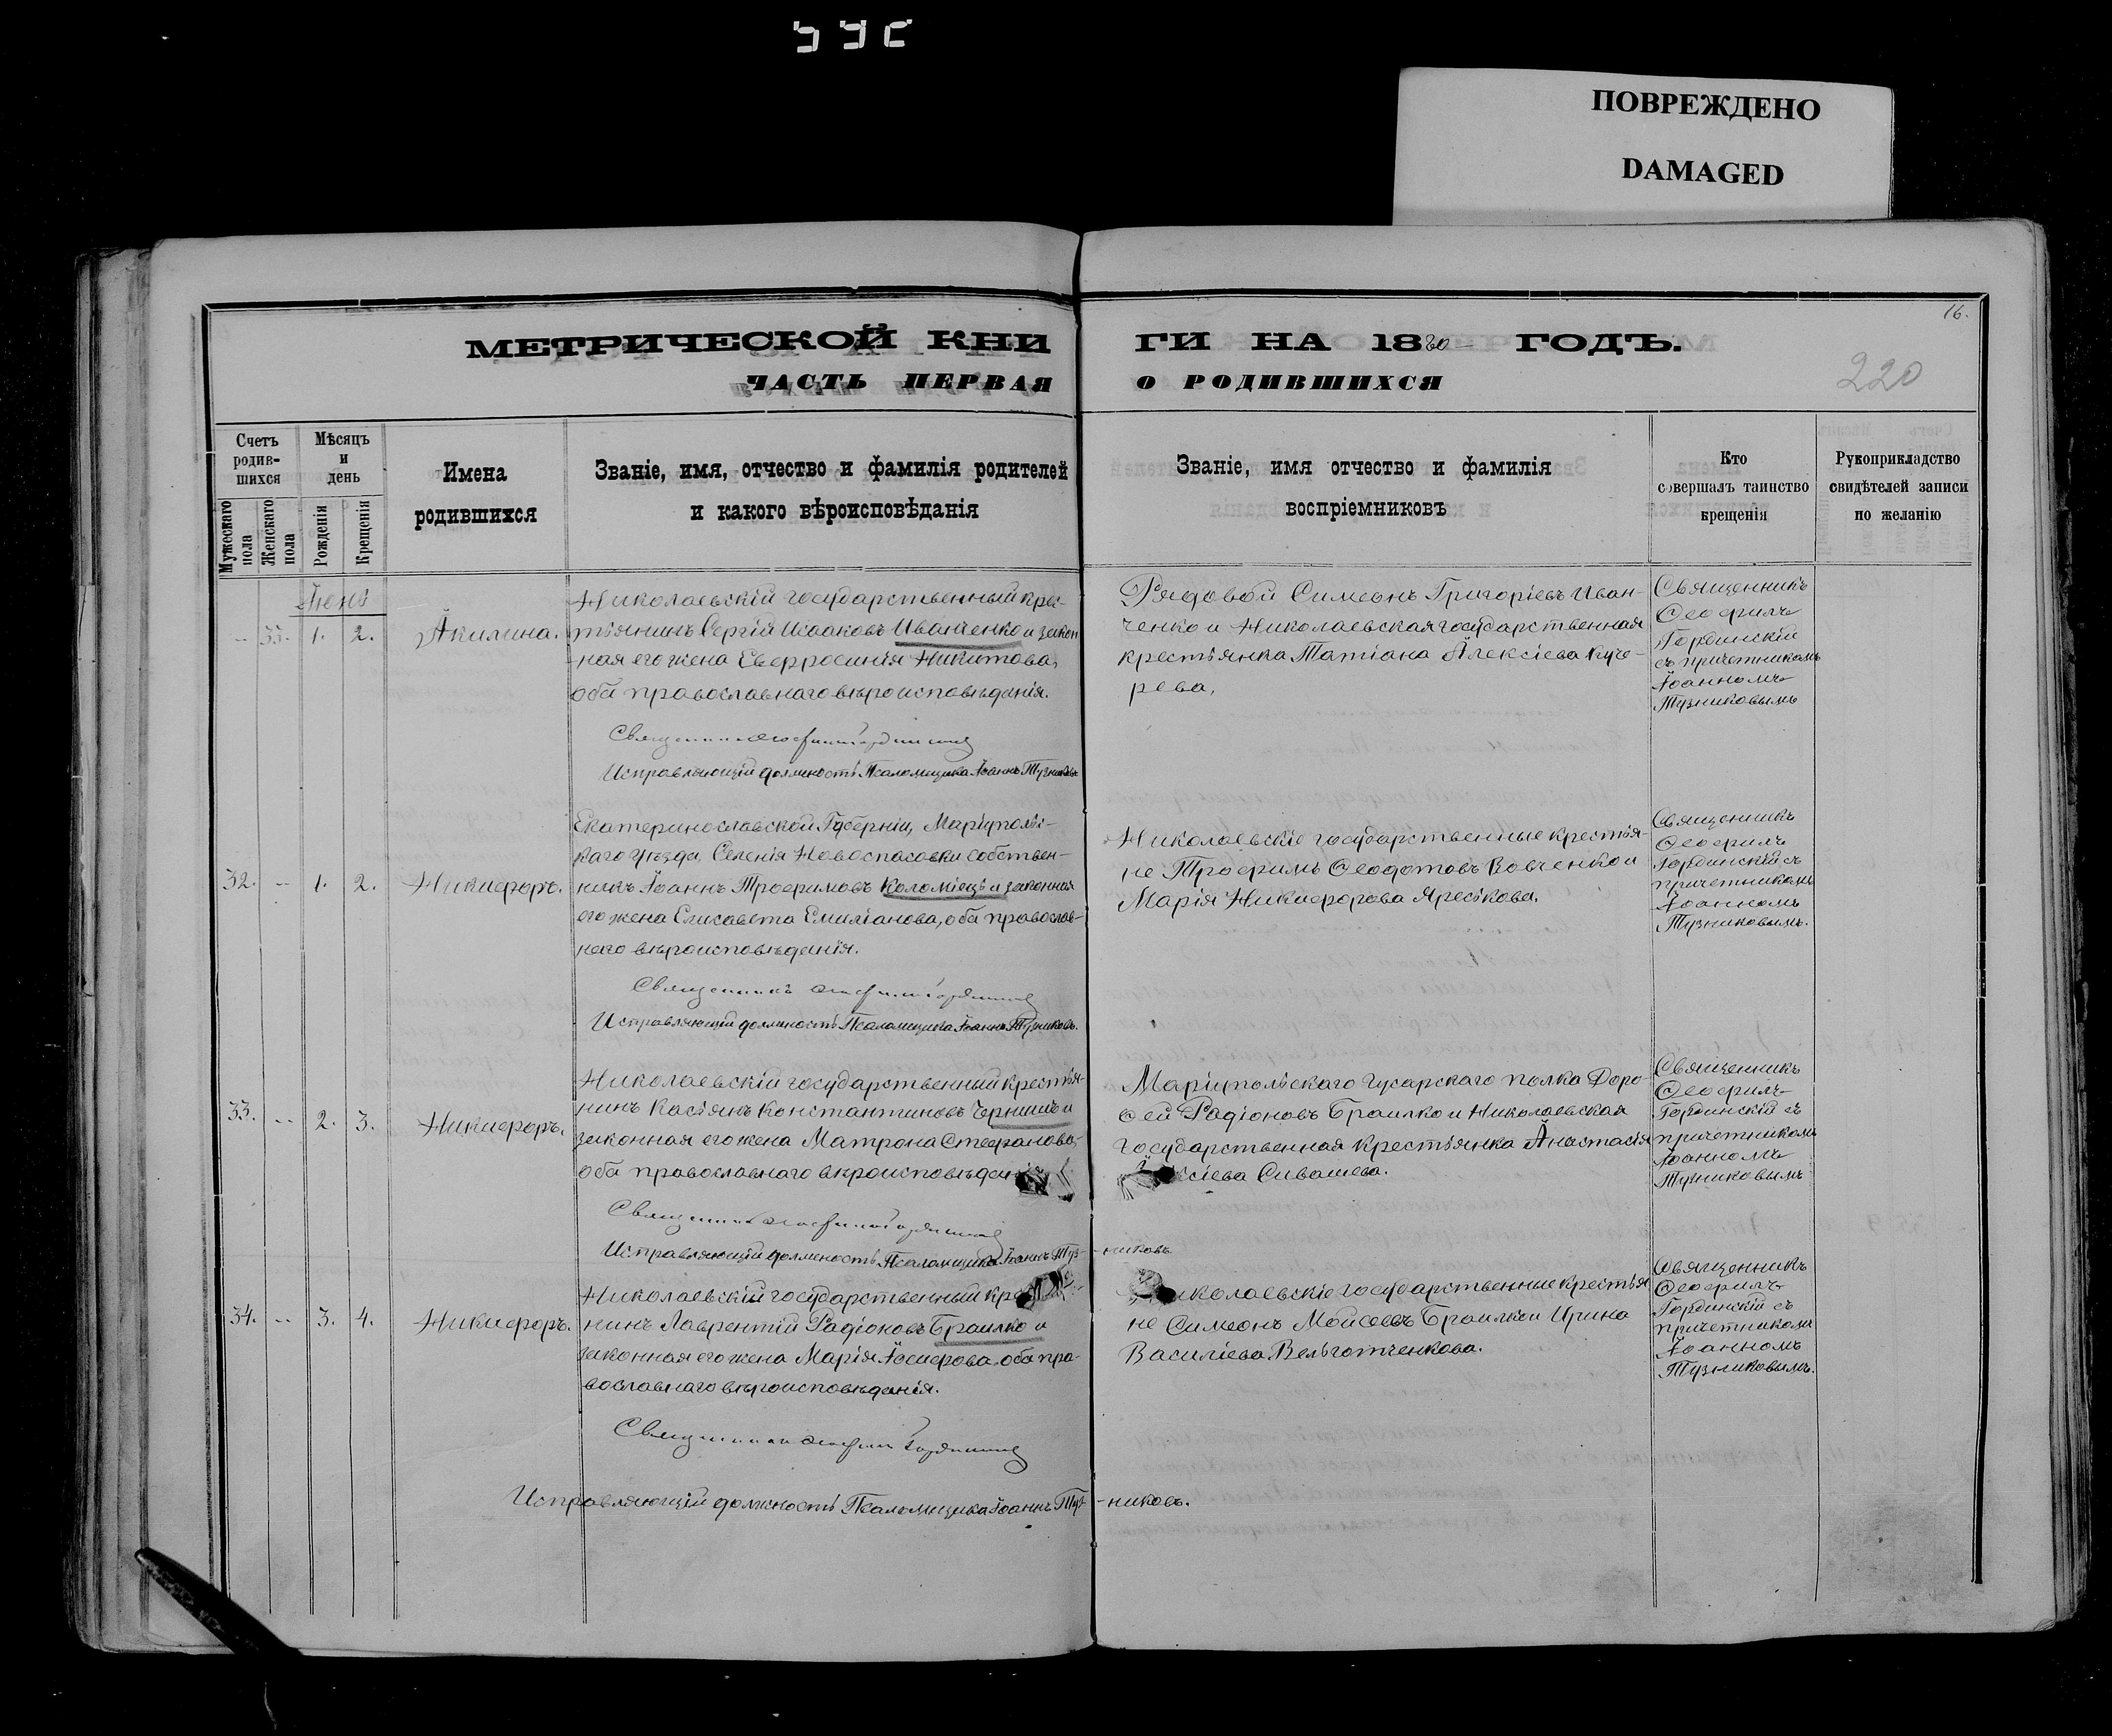 ПОВРЕЖДЕНО
DAMAGED
16.
МЕТРИЧЕСКОЙ КНИ
ГИ НА 1880 ГОДЪ.
ЧАСТЬ ПЕРВАЯ
О РОДИВШИХСЯ
220
Счетъ
родив-
шихся
Мужескаго
пола
Женскаго
пола
Мѣсяцъ
и
день
Рожденія
Крещенія
Имена
родившихся
Званіе, имя, отчество и фамилія родителей
и какого вѣроисповѣданія
Званіе, имя отчество и фамилія
воспріемниковъ
Кто
совершалъ таинство
крещенія
Рукоприкладство
свидѣтелей записи
по желанію
Іюнь
-- 33. 1. 2. Акилина.
Николаевскій государственный крес-
тьянинъ Сергій Исааковъ Иванченко и закон
ная его жена Евфросинія Никитова,
оба православнаго вѣроисповѣданія.
Священникъ Ѳеофилъ Гординскій
Исправляющій должность Псаломщика Іоаннъ Тузниковъ
Рядовой Симеонъ Григоріевъ Иван-
ченко и Николаевская государственная
крестьянка Татіана Алексіева Куче-
рева.
Священникъ
Ѳеофилъ
Гординскій
съ причетникомъ
Іоанномъ
Тузниковымъ
32. -- 1. 2. Никифоръ.
Екатеринославской Губерніи, Маріупольс-
каго уѣзда, Селенія Новоспасовки собствен-
никъ Іоаннъ Трофимовъ Коломіецъ и законная
его жена Елисавета Емиліанова, оба православ-
наго вѣроисповѣданія.
Священникъ Ѳеофилъ Гординскій
Исправляющій должность Псаломщика Іоаннъ Тузниковъ.
Николаевскіе государственные крестья-
не Трофимъ Ѳеодотовъ Вовченко и
Марія Никифорова Яреськова.
Священникъ
Ѳеофилъ
Гординскій съ
причетникомъ
Іоанномъ
Тузниковымъ.
33. -- 2. 3. Никифоръ.
Николаевскій государственный крестья-
нинъ Касіянъ Константиновъ Чернышъ и
законная его жена Матрона Стефанова,
оба православнаго вѣроисповѣдан
Священникъ Ѳеофилъ Гординскій
Исправляющій должность Псаломщика Іоаннъ Туз-
никовъ
Маріупольскаго Гусарскаго полка Доро-
ѳей Радіоновъ Браилко и Николаевская
государственная крестьянка Анастасія
сіева Сивашева.
Священникъ
Ѳеофилъ
Гординскій съ
причетникомъ
Іоанномъ
Тузниковымъ
34. -- 3. 4. Никифоръ.
Николаевскій государственный кре
нинъ Лаврентій Радіоновъ Браилко и
законная его жена Марія Іосифова, оба пра-
вославнаго вѣроисповѣданія.
Священникъ Ѳеофилъ Гординскій
Исправляющій должность Псаломщика Іоаннъ Туз
-никовъ.
иколаевскіе государственные крестья
не Симеонъ Мойсеевъ Браилко и Ирина
Василіева Вельготченкова.
Священникъ
Ѳеофилъ
Гординскій съ
причетникомъ
Іоанномъ
Тузниковымъ.